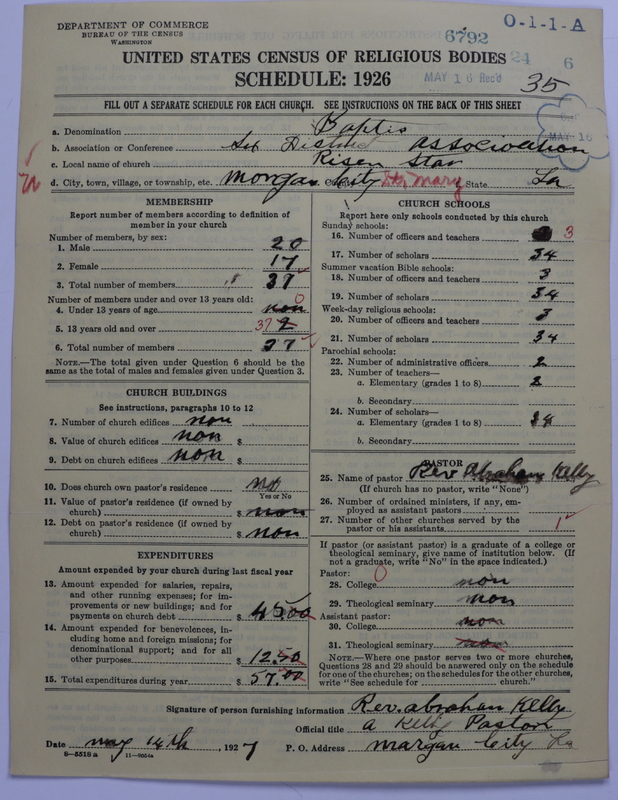 DEPARTMENT OF COMMERCE
BUREAU OF THE CENSUS
WASHINGTON
O-1-1-A
6792
24 6
UNITED STATES CENSUS OF RELIGIOUS BODIES
SCHEDULE: 1926
MAY 16 Rec'd
35
FILL OUT A SEPARATE SCHEDULE FOR EACH CHURCH. SEE INSTRUCTIONS ON THE BACK OF THIS SHEET
MAY 16
a. Denomination Baptis
b. Association or Conference District association
c. Local name of church Risen Star
d. City, town, village, or township, etc. Morgan City Mary State La
MEMBERSHIP
Report number of members according to definition of
member in your church
Number of members, by sex:
1. Male 20
2. Female 17
3. Total number of members 37
Number of members under and over 13 years old:
4. Under 13 years of age non 0
5. 13 years old and over 37
6. Total number of members 37
NOTE.—The total given under Question 6 should be the
same as the total of males and females given under Question 3.
CHURCH BUILDINGS
See instructions, paragraphs 10 to 12
7. Number of church edifices non
8. Value of church edifices non $
9. Debt on church edifices non $
10. Does church own pastor's residence no
Yes or No
11. Value of pastor's residence (if owned by
church) $ non
12. Debt on pastor's residence (if owned by
church) $ non
EXPENDITURES
Amount expended by your church during last fiscal year
13. Amount expended for salaries, repairs,
and other running expenses; for im-
provements or new buildings; and for
payments on church debt $ 45.00
14. Amount expended for benevolences, in-
cluding home and foreign missions; for
denominational support; and for all
other purposes $ 12.50
15. Total expenditures during year $ 57.00
CHURCH SCHOOLS
Report here only schools conducted by this church
Sunday schools:
16. Number of officers and teachers 3
17. Number of scholars 34
Summer vacation Bible schools:
18. Number of officers and teachers 3
19. Number of scholars 34
Week-day religious schools:
20. Number of officers and teachers 3
21. Number of scholars 34
Parochial schools:
22. Number of administrative officers 2
23. Number of teachers—
a. Elementary (grades 1 to 8) 2
b. Secondary
24. Number of scholars—
a. Elementary (grades 1 to 8) 34
b. Secondary
PASTOR
25. Name of pastor Rev. Abraham Kelly
(If church has no pastor, write "None")
26. Number of ordained ministers, if any, em-
ployed as assistant pastors
27. Number of other churches served by the
pastor or his assistants 1
If pastor (or assistant pastor) is a graduate of a college or
theological seminary, give name of institution below. (If
not a graduate, write "No" in the space indicated.)
Pastor: 0
28. College non
29. Theological seminary non
Assistant pastor:
30. College non
31. Theological seminary non
NOTE.—Where one pastor serves two or more churches,
Questions 28 and 29 should be answered only on the schedule
for one of the churches; on the schedules for the other churches,
write "See schedule for church."
Signature of person furnishing information Rev. abraham Kelly
Official title a Kelly Pastor
Date may 14th, 1927 P. O. Address margan City La
8—5518 a 11—9654a